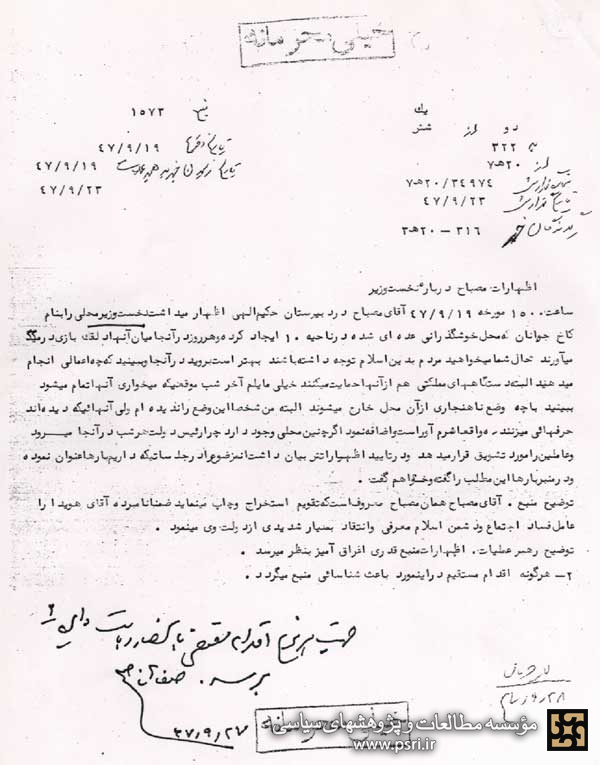 خیلی محرمانه
یك
دو از شش
به ۳۲۲
از ۲۰ هـ ۷
۷هـ۲۰/۳۴۹۷۴
۴۷/۹/۲۳
۳۱۶ - ۲۰هـ۳
منبع ۱۵۷۳
۴۷/۹/۱۹
۴۷/۹/۱۹
۴۷/۹/۲۳
اظهارات مصباح درباره نخست وزیر
ساعت ۱۵۰۰ مورخه ۴۷/۹/۱۹ آقای مصباح در دبیرستان حکیم الهی اظهار میداشت نخست وزیر محلی را بنام
کاخ جوانان که محل خوشگذرانی عده ای شده در ناحیه ۱۰ ایجاد کرده و هر روز در آنجا میان آنها دلقك بازی در
میآورند حال شما میخواهید مردم بدین اسلام توجه داشته باشند بهتر است بروید در آنجا و ببینید که چه اعمالی انجام
میدهند البته دستگاههای مملکتی هم از آنها حمایت میکنند خیلی مایلم آخر شب موقعیکه میخواری آنها تمام میشود
ببینید باچه وضع ناهنجاری از آن محل خارج میشوند البته من شخصا این وضع را ندیده ام ولی آنهائیکه دیده اند
حرفهائی میزنند که واقعا شرم آور است و اضافه نمود اگر چنین محلی وجود دارد چرا رئیس دولت هر شب در آنجا میرود
و عاملین را مورد تشویق قرار میدهد و در تایید اظهارات بیان داشت این موضوع را در جلساتیکه داریم بارها عنوان نموده
و در منبر بارها این مطلب را گفته و خواهم گفت .
توضیح منبع . آقای مصباح همان مصباح معروف است که تقویم استخراج و چاپ مینماید ضمنا نامبرده آقای هویدا را
عامل فساد اجتماع و دشمن اسلام معرفی و انتقاد بسیار شدیدی از دولت وی مینمود .
توضیح رهبر عملیات . اظهارات منبع قدری اغراق آمیز بنظر میرسد .
۲- هرگونه اقدام مستقیم در اینمورد باعث شناسائی منبع میگردد .
جهت هرنوع اقدام مقتضی
برسد .
۴۷/۹/۲۷
خیلی محرمانه
مؤسسه مطالعات و پژوهشهای سیاسی
www.psri.ir